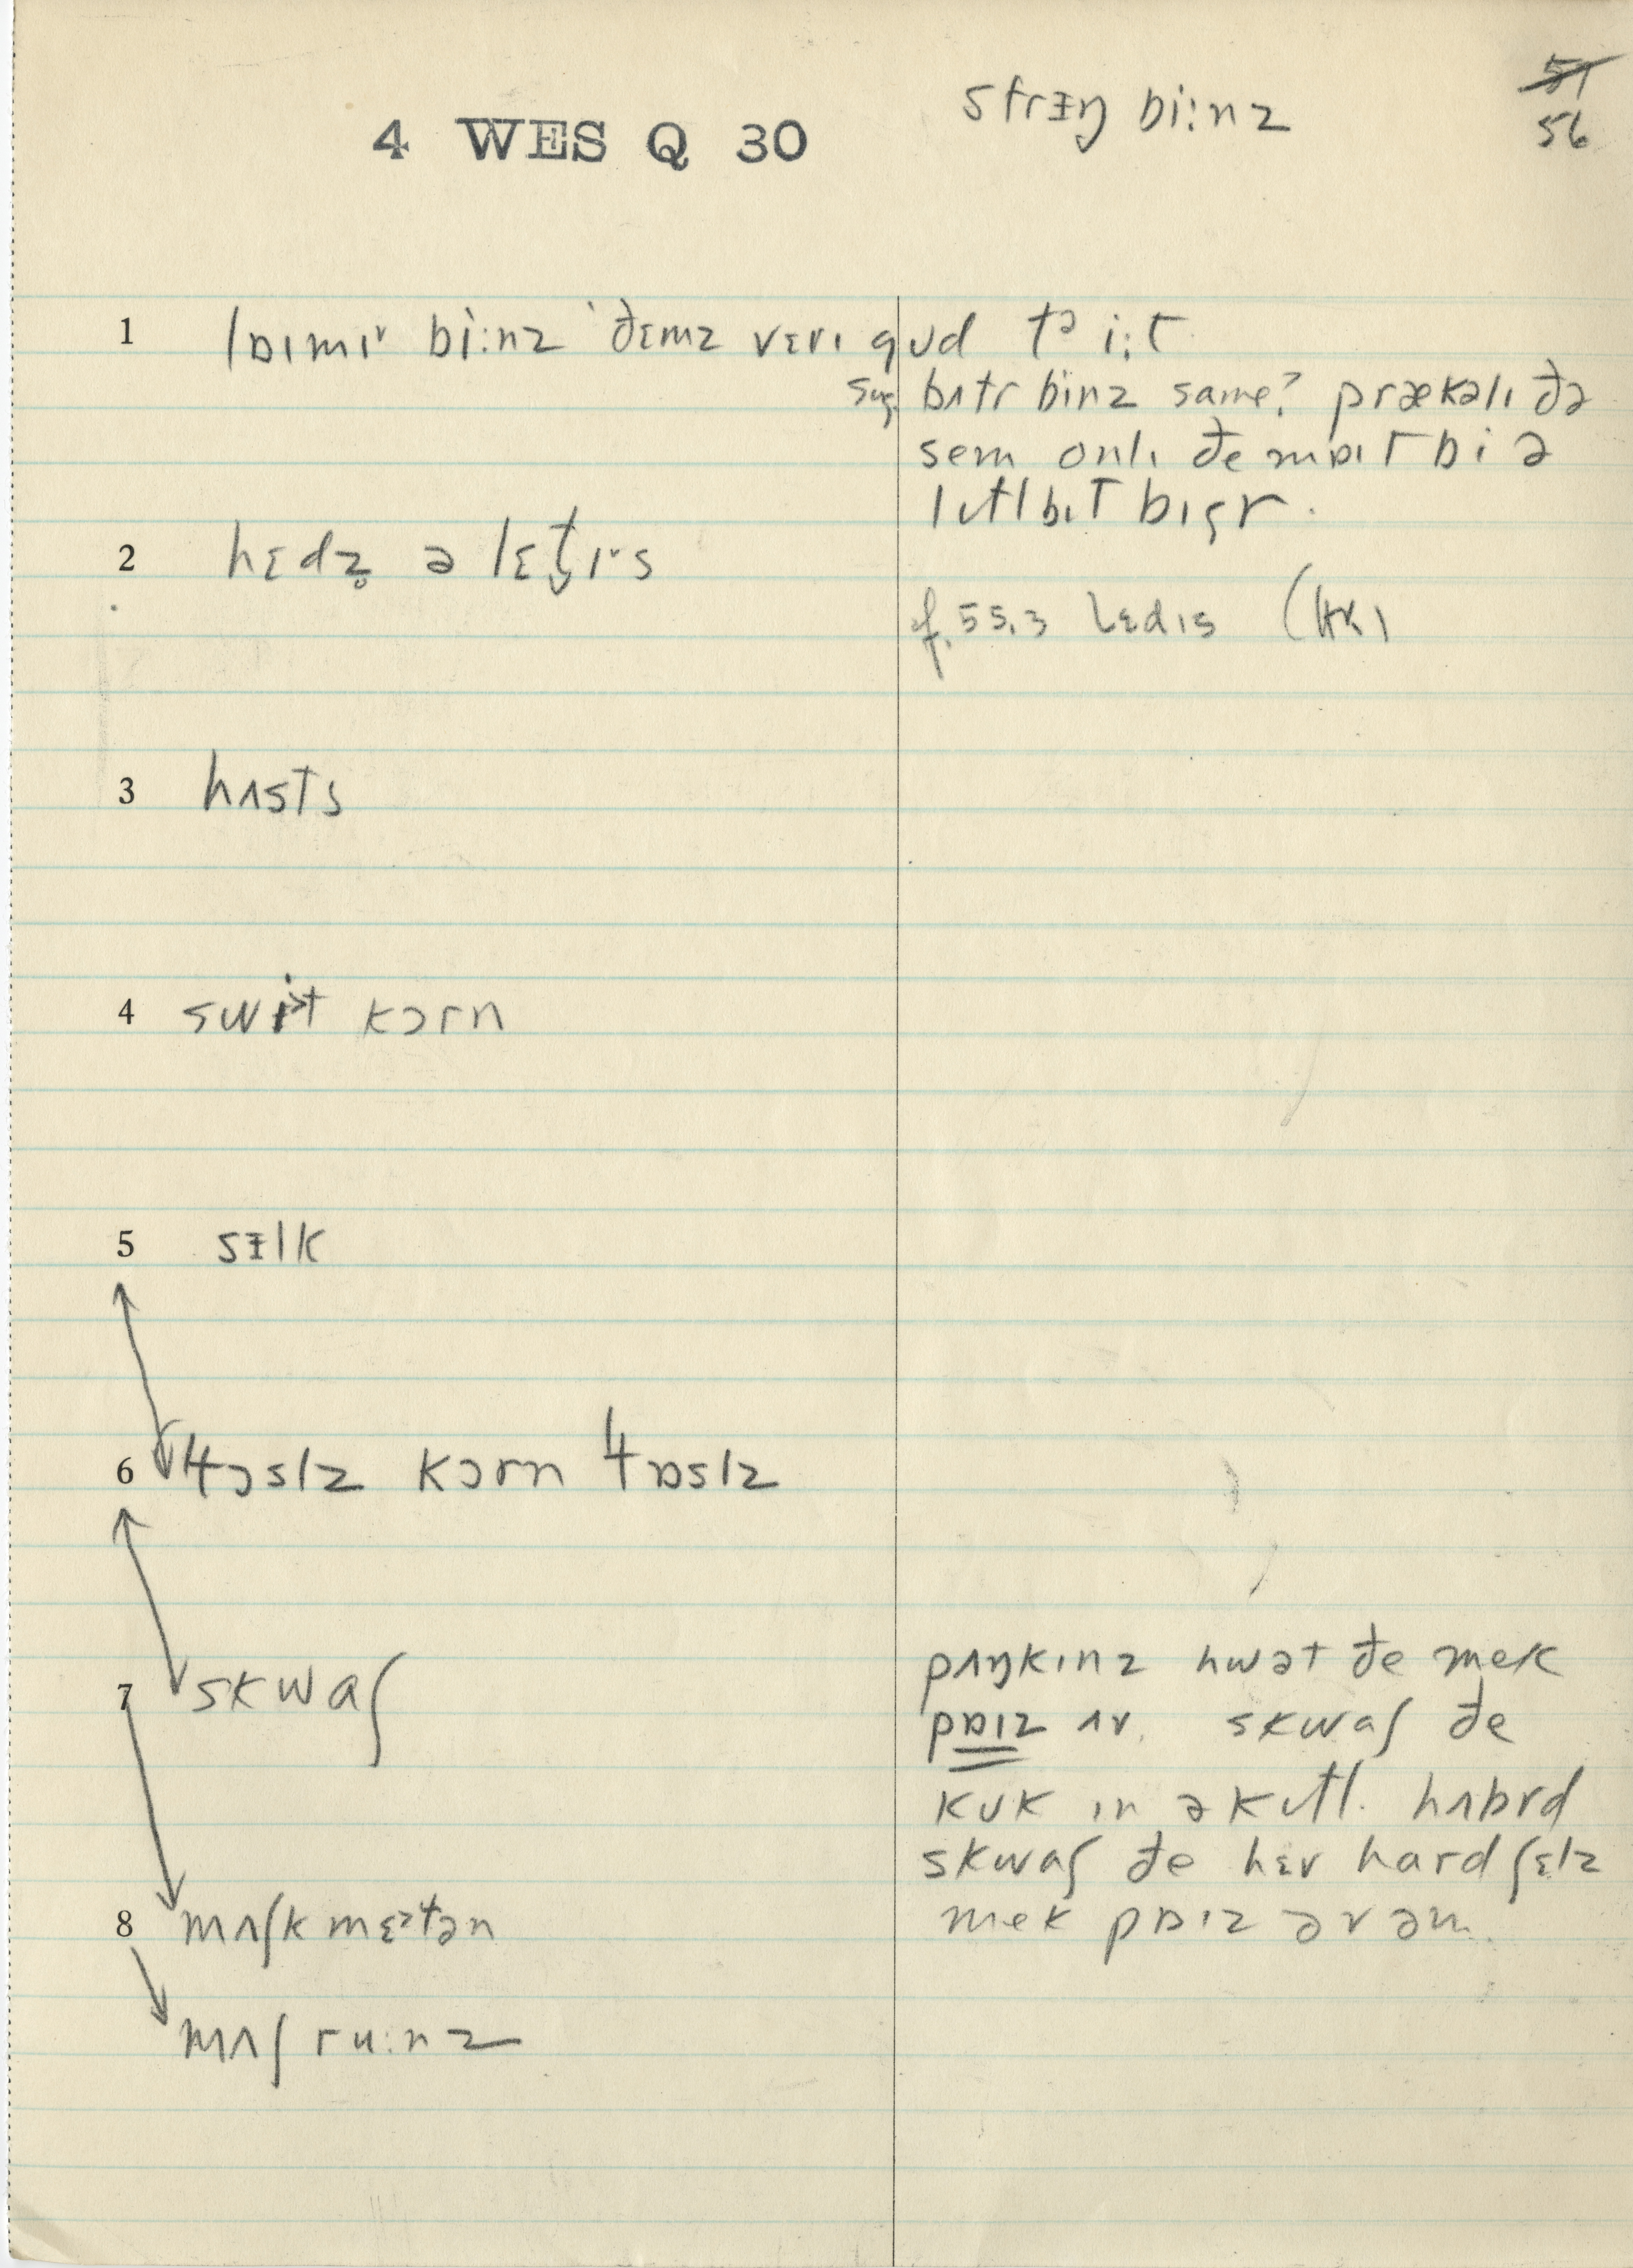 strɪŋ bi:nz
51
56
4 WES Q 30
1 lɒɪmɪᵊ bi:nz ˈðɛmz vɛrɪ gʊd tᵊ i:t
sug. bʌtr binz same? prækəlɪ ðə
sem onlɪ ðe mɒɪt bi ə
lɪtl bɪt bɪgr.
2 hɛdz̥ ə lɛt̬ɪˑs
cf. 55.3 lɛdɪs
3 hʌsts
4 swiᵊt kɔrn
5 sɪlk
6 tɔslz kɔrn tɒslz
7 skwaʃ
pʌŋkɪnz hwət ðe mek
pɒɪz ʌv. skwaʃ ðe
kʊk ɪn ə kɪtl. hʌbrd
skwaʃ ðe hɛv hard ʃɛlz
mek pɒɪz əv əm.
8 mʌʃk mɛᵊtən
mʌʃ ru:nz